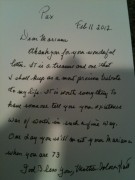 Pax
Feb 11 2012
Dear Mariann
Thank you for your wonderful
letter. IT is a treasure and one that
I shall keep as a most precious tribute
to my life. IT is worth everything to
have someone tell you your existence
was of worth in such a fine way.
One day you will be out of your Mariann
when you are 73
God Bless you, Mother Dolores Hart